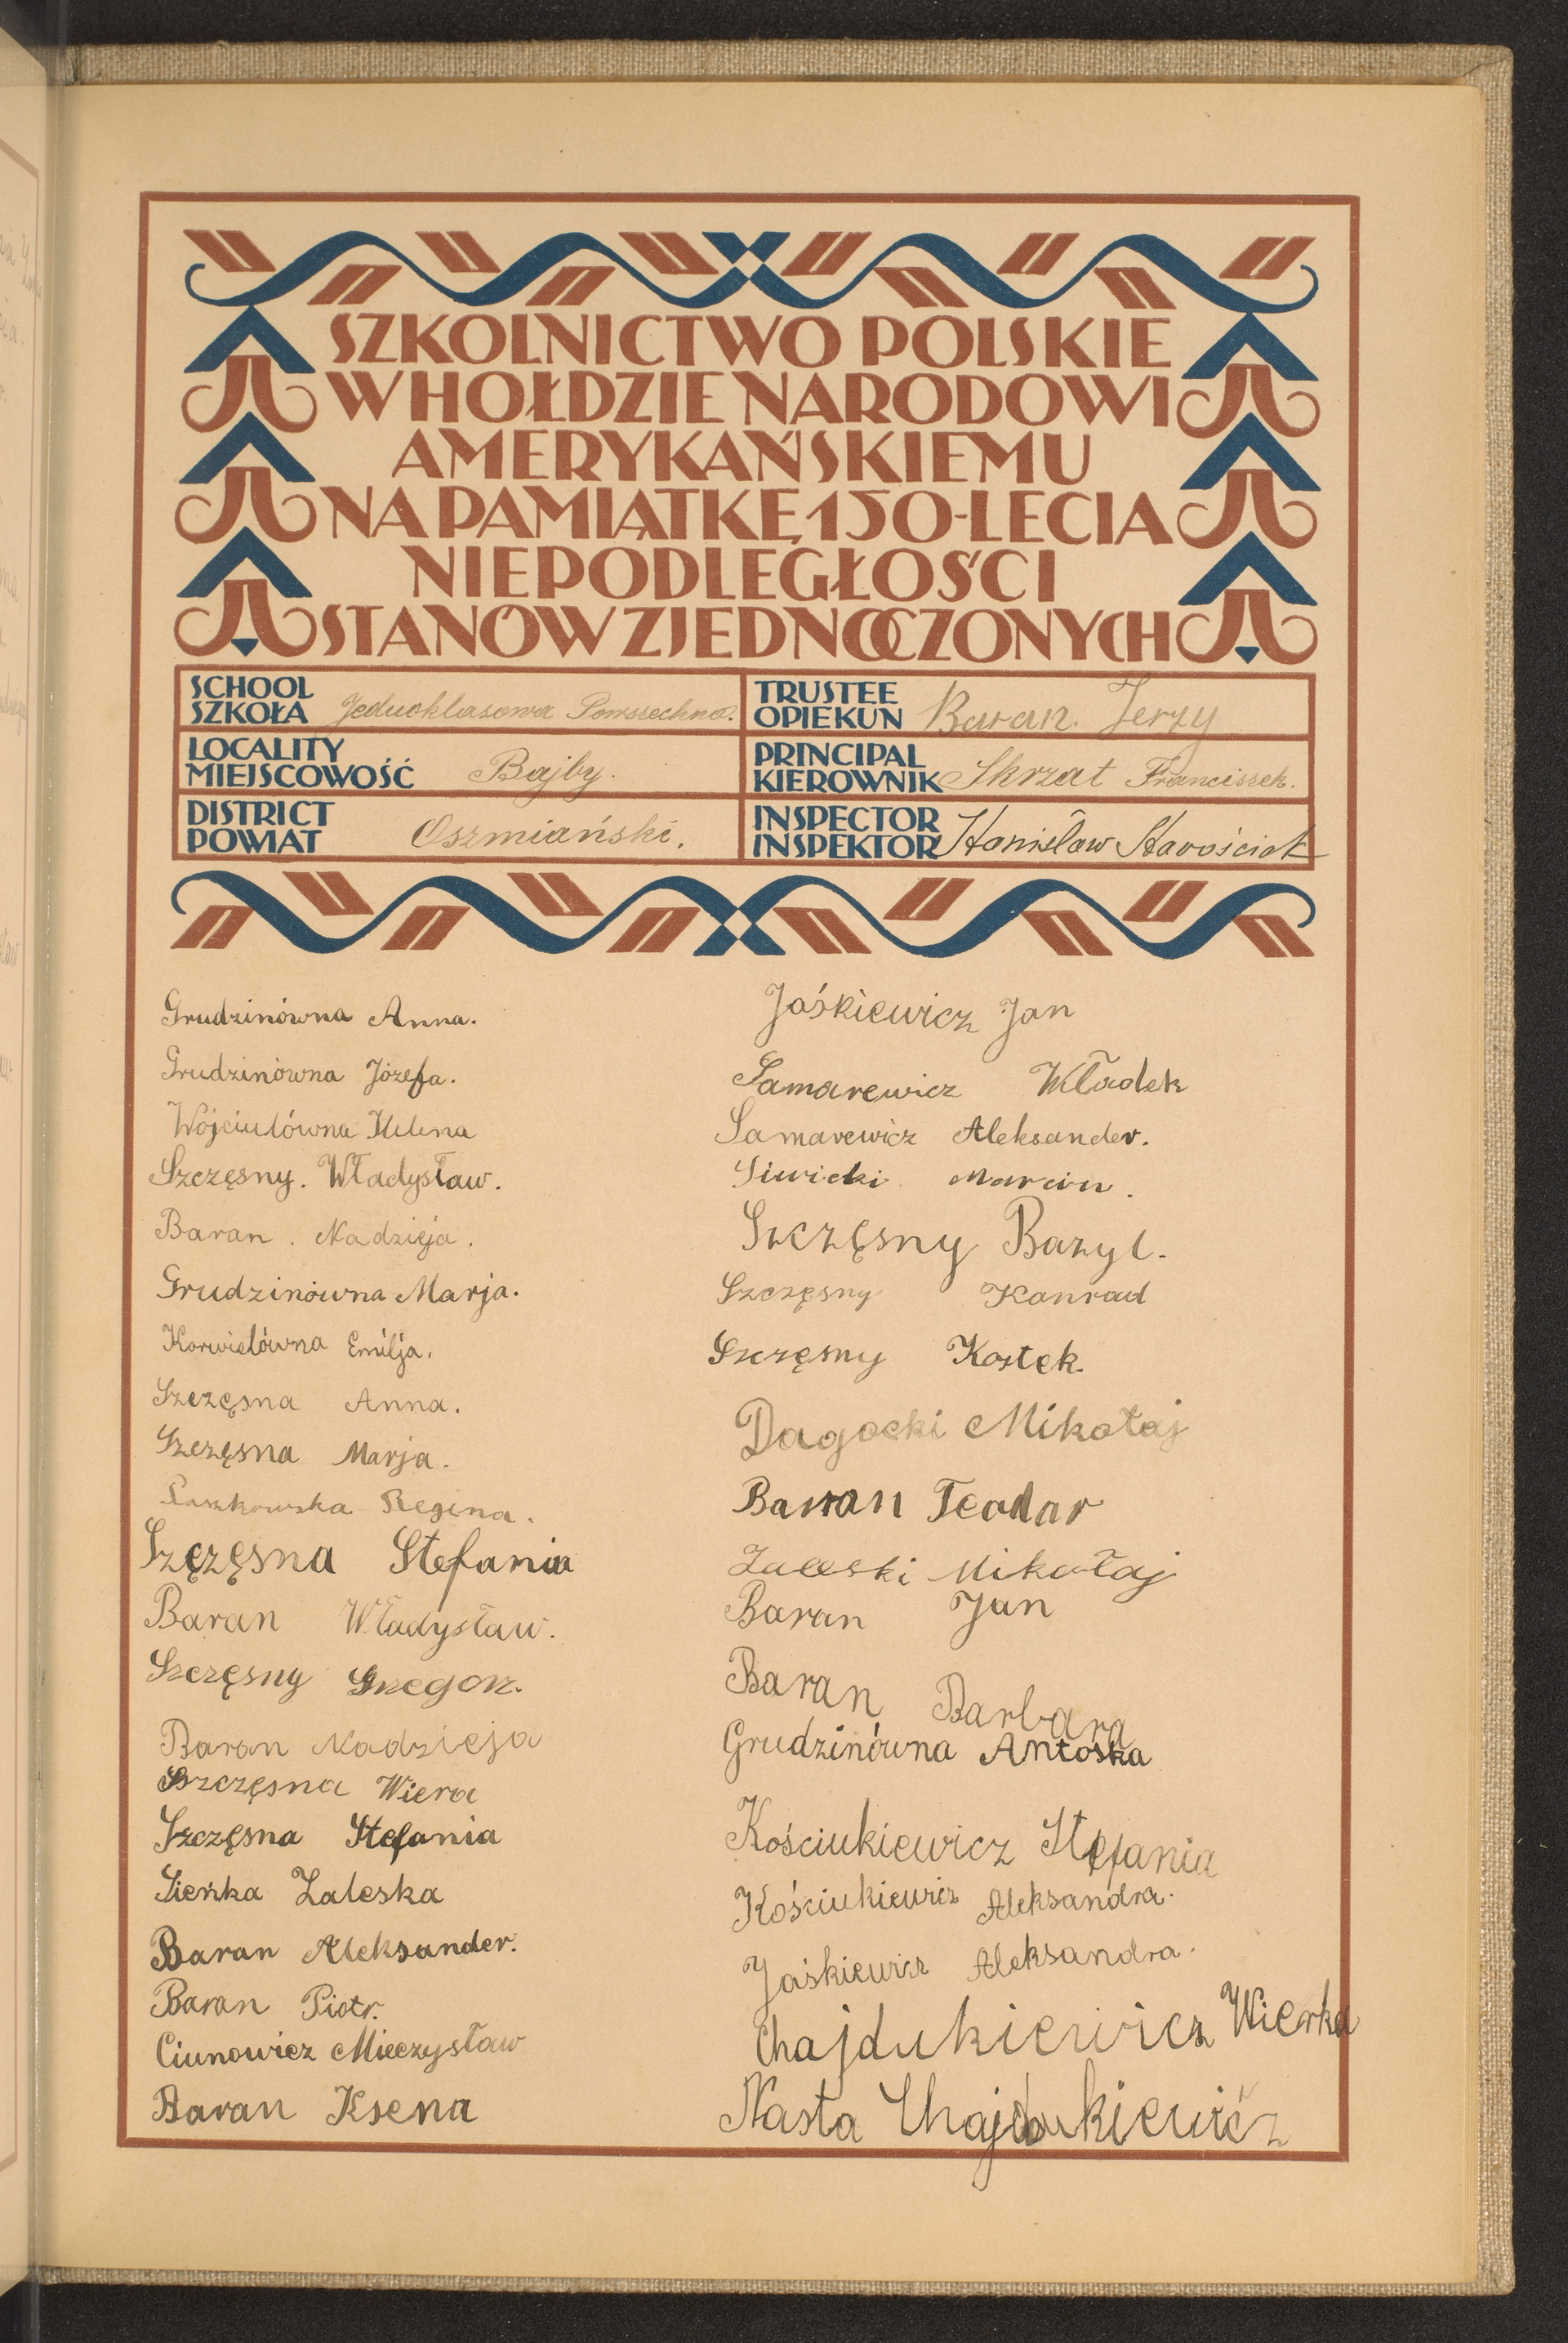 SZKOLNICTWO POLSKIE
W HOŁDZIE NARODOWI
AMERYKAŃSKIEMU
NA PAMIĄTKĘ 150-LECIA
NIEPODLEGŁOŚCI
STANÓW ZJEDNOCZONYCH
SCHOOL
SZKOŁA Jednoklasowa Powszechna.
TRUSTEE
OPIEKUN Baran Jerzy
LOCALITY
MIEJSCOWOŚĆ Bajby.
PRINCIPAL
KIEROWNIK Skrzat Franciszek.
DISTRICT
POWIAT Oszmiański.
INSPECTOR
INSPEKTOR Stanisław Starościak
Grudzinówna Anna.
Grudzinówna Józefa.
Wójciulówna Helena
Szczęsny. Władysław.
Baran. Nadzieja.
Grudzinówna Marja.
Korwielówna Emilja.
Szczęsna Anna.
Szczęsna Marja.
Regina.
Szęzęsna Stefania
Baran Władysław.
Szczęsny Grzegorz.
Baran Nadzieja
Szczęsna Wiera
Szczęsna Stefania
Sieńka Zaleska
Baran Aleksander.
Baran Piotr.
Ciunowicz Mieczysław
Baran Ksena
Jaśkiewicz Jan
Samarewicz Władek
Samarewicz Aleksander.
Siwicki Marcin.
Szczęsny Bazyl.
Szczęsny Konrad
Szczęsny Kostek.
Dagocki Mikołaj
Baran Teodor
Zaleski Mikołaj
Baran Jan
Baran Barbara
Grudzinówna Antośka
Kościukiewicz Stefania
Kościukiewicz Aleksandra.
Jaśkiewicz Aleksandra.
Chajdukiewicz Wierka
Nasta Chajdukiewicz